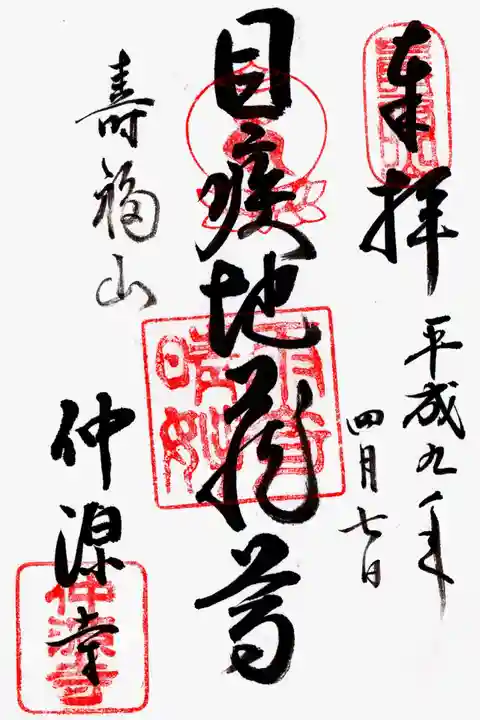 奉拝
平成九年
四月七日
目疾地蔵尊
寿福山
仲源寺
仲源寺